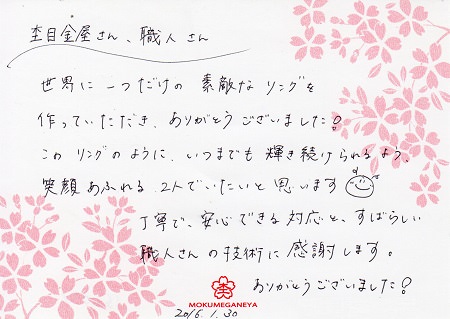 杢目金屋さん、職人さん
世界に一つだけの素敵なリングを
作っていただき、ありがとうございました!
このリングのように、いつまでも輝き続けられるよう、
笑顔あふれる2人でいたいと思います
丁寧で、安心できる対応と、すばらしい
職人さんの技術に感謝します。
ありがとうございました!
MOKUMEGANEYA
2016.1.30